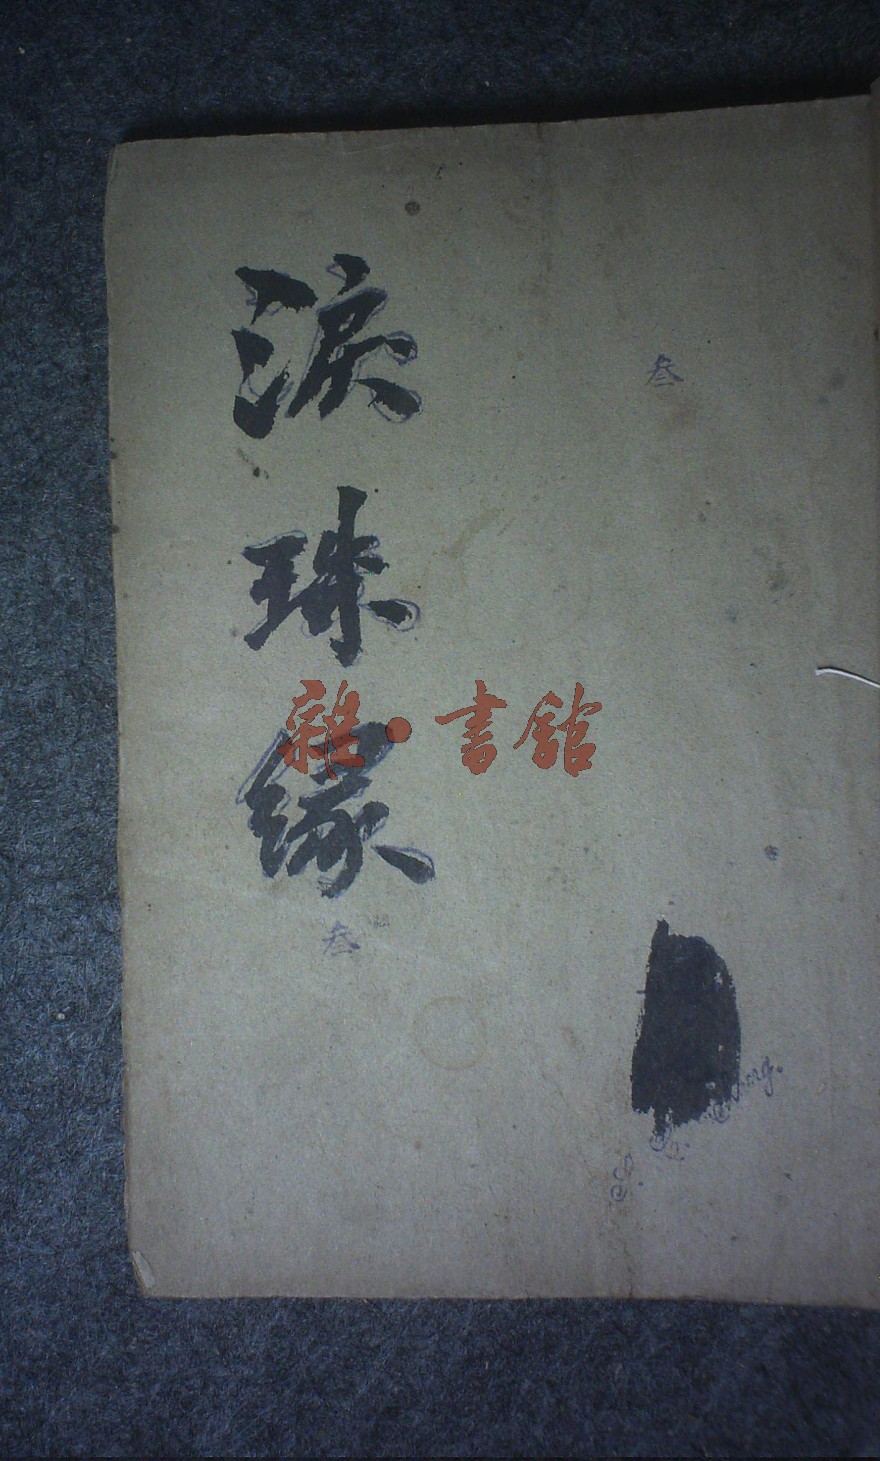 叁
淚珠緣
叁
雜·書館